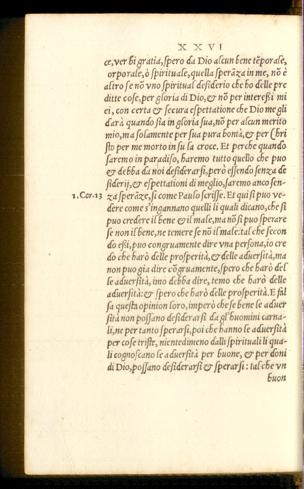 XXVI
ce, ver bi gratia, spero da Dio alcun bene tẽporale,
orporale, ò spirituale, quella sperãza in me, nõ è
altro se nõ vno spiritual desiderio che ho delle pre
ditte cose, per gloria di Dio, & nõ per interessi mi
ei, con certa & secura espettatione che Dio me gli
darà quando sia in gloria sua, nõ per alcun merito
mio, ma solamente per sua pura bontà, & per Chri
sto per me morto in su la croce. Et perche quando
saremo in paradiso, haremo tutto quello che puo
& debba da noi desiderarsi, però essendo senza de
siderij, & espettationi di meglio, saremo anco sen-
1. Cor. 13 za sperãze, si come Paulo scrisse. Et qui si puo ve-
dere come s'ingannano quelli li quali dicano, che si
puo credere il bene & il male, ma nõ si puo sperare
se non il bene, ne temere se nõ il male: tal che secon
do essi, puo congruamente dire vna persona, io cre
do che harò delle prosperità, & delle aduersità, ma
non puo gia dire cõgruamente, spero che harò del
le aduersità, imo debba dire, temo che harò delle
aduersità: & spero che harò delle prosperità. E fal
sa questa opinion loro, imperò che se bene le aduer
sità non possano desiderarsi da gl'huomini carna-
li, ne per tanto sperarsi, poi che hanno le aduersità
per cose triste, nientedimeno dalli spirituali li qua-
li cognoscano le aduersità per buone, & per doni
di Dio, possano desiderarsi & sperarsi: tal che vn
buon